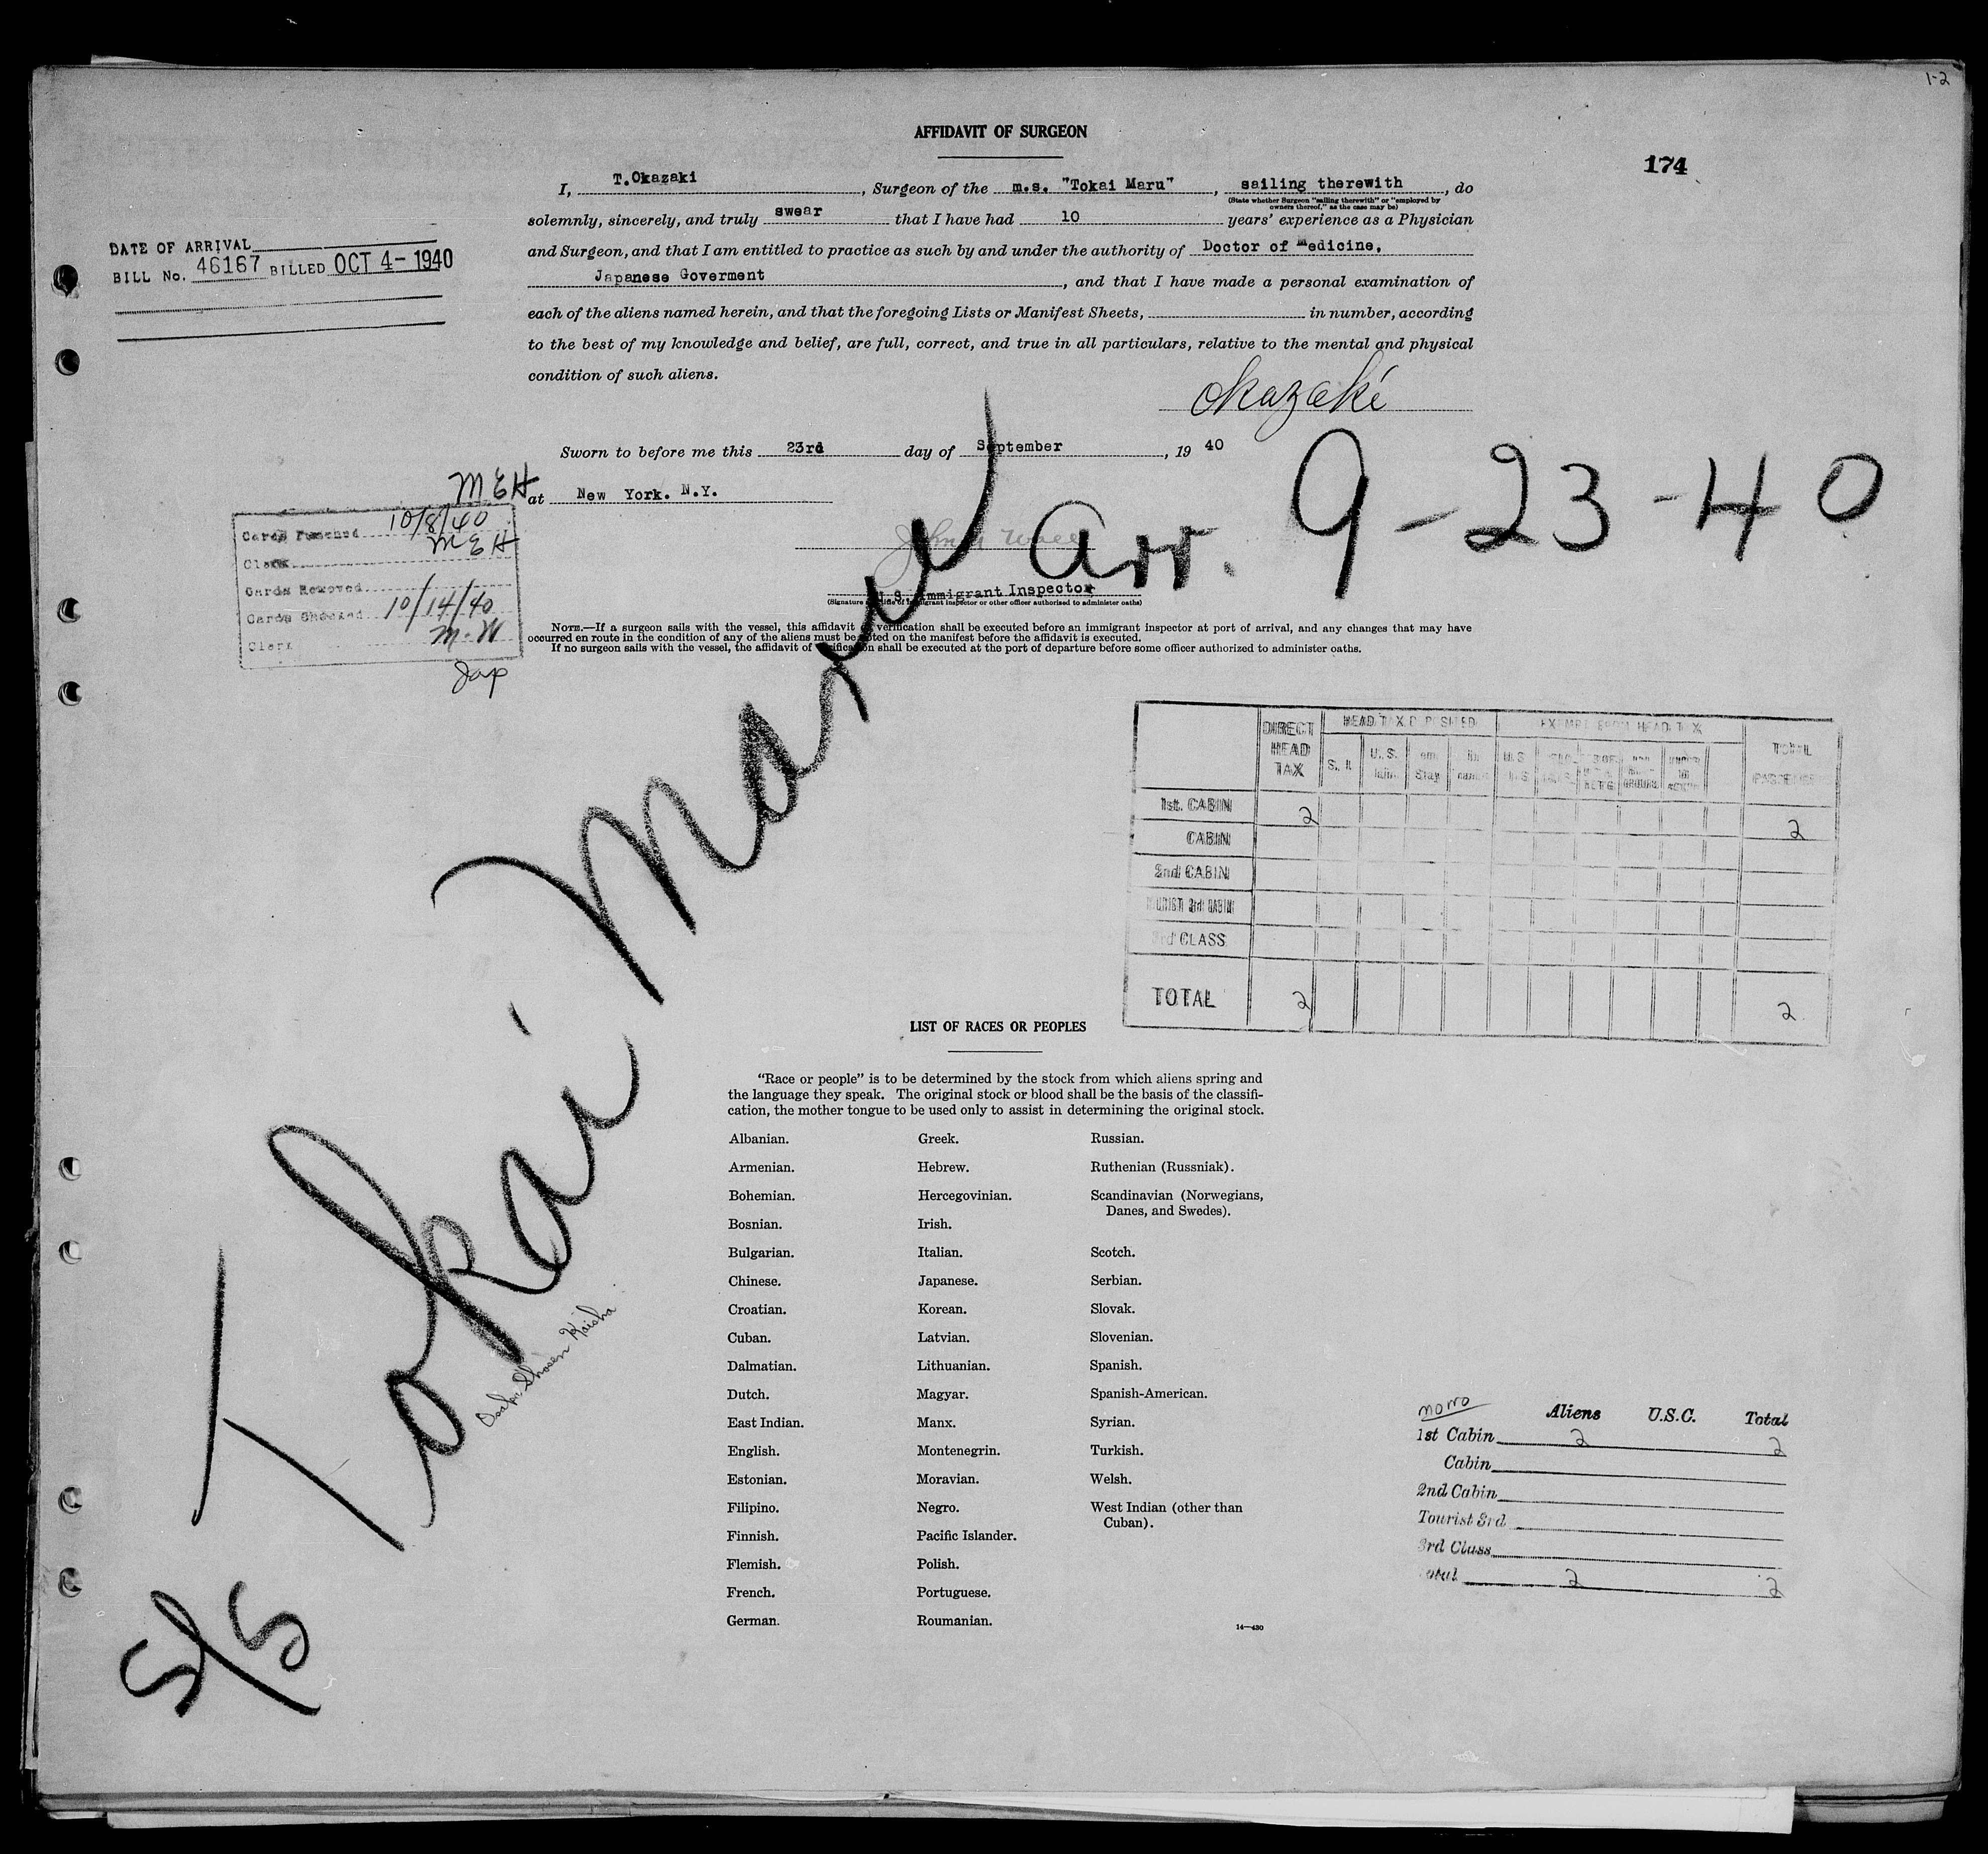 1-2
AFFIDAVIT OF SURGEON
174
I, T.Okazaki, Surgeon of the m.s. "Tokai Maru", sailing therewith, do
(State whether Surgeon "sailing therewith" or "employed by
owners thereof," as the case may be)
solemnly, sincerely, and truly swear that I have had 10 years' experience as a Physician
and Surgeon, and that I am entitled to practice as such by and under the authority of Doctor of Medicine.
Japanese Goverment, and that I have made a personal examination of
each of the aliens named herein, and that the foregoing Lists or Manifest Sheets, in number, according
to the best of my knowledge and belief, are full, correct, and true in all particulars, relative to the mental and physical
condition of such aliens.
Okazaki
DATE OF ARRIVAL
BILL No. 46167 BILLED OCT 4-1940
Sworn to before me this 23rd day of September, 19 40
at New York. N.Y.
U.S. Immigrant Inspector
(Signature and title of immigrant inspector or other officer authorized to administer oaths)
Arr. 9-23-40
MEH
Cards Punched 10/8/40
Clerk MEH
Cards Removed
Cards Checked 10/14/40
Clerk M.W
Jap
NOTE.—If a surgeon sails with the vessel, this affidavit of verification shall be executed before an immigrant inspector at port of arrival, and any changes that may have
occurred en route in the condition of any of the aliens must be noted on the manifest before the affidavit is executed.
If no surgeon sails with the vessel, the affidavit of verification shall be executed at the port of departure before some officer authorized to administer oaths.
S/S Tokai Maru
Shosen Kaisha
DIRECT HEAD TAX HEAD TAX DEPOSITED EXEMPT FROM HEAD TAX TOTAL
1st. CABIN 2 2
CABIN
2nd CABIN
TOURIST 3rd CABIN
3rd CLASS
TOTAL 2 2
LIST OF RACES OR PEOPLES
"Race or people" is to be determined by the stock from which aliens spring and
the language they speak. The original stock or blood shall be the basis of the classifi-
cation, the mother tongue to be used only to assist in determining the original stock.
Albanian. Greek. Russian.
Armenian. Hebrew. Ruthenian (Russniak).
Bohemian. Hercegovinian. Scandinavian (Norwegians,
Danes, and Swedes).
Bosnian. Irish.
Bulgarian. Italian. Scotch.
Chinese. Japanese. Serbian.
Croatian. Korean. Slovak.
Cuban. Latvian. Slovenian.
Dalmatian. Lithuanian. Spanish.
Dutch. Magyar. Spanish-American.
East Indian. Manx. Syrian.
English. Montenegrin. Turkish.
Estonian. Moravian. Welsh.
Filipino. Negro. West Indian (other than
Cuban).
Finnish. Pacific Islander.
Flemish. Polish.
French. Portuguese.
German. Roumanian.
14—430
Aliens U.S.C. Total
1st Cabin 2 2
Cabin
2nd Cabin
Tourist 3rd
3rd Class
Total 2 2